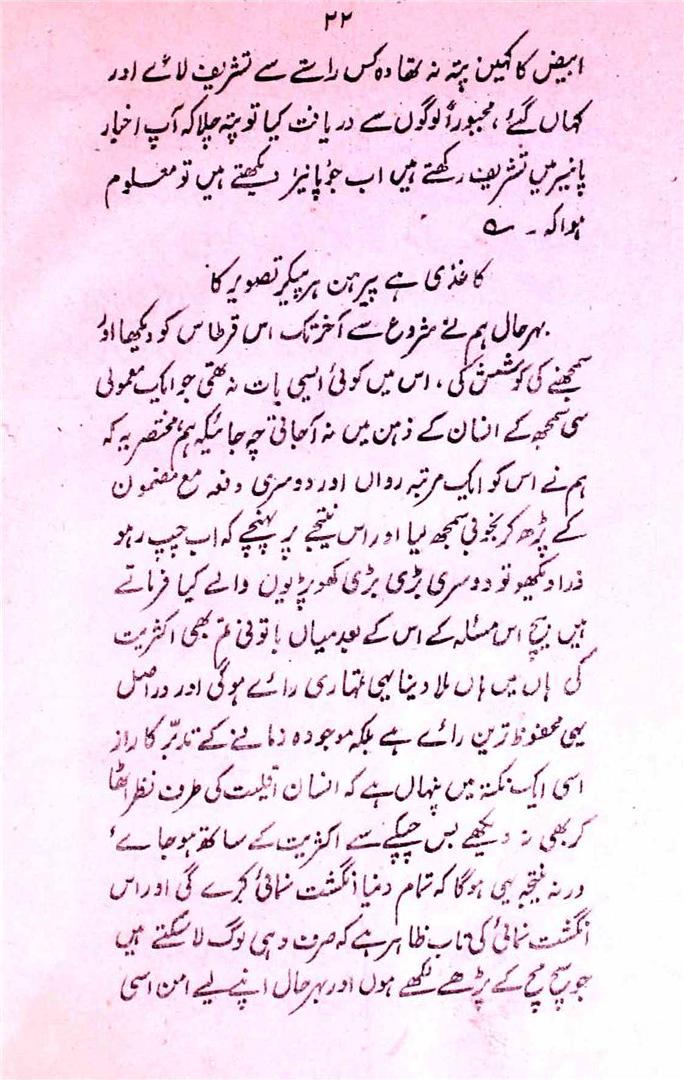 ۲۲
ابیض کا کہیں پتہ نہ تھا وہ کس راستے سے تشریف لائے اور
کہاں گئے، مجبوراً لوگوں سے دریافت کیا تو پتہ چلا کہ آپ اخبار
پانیر میں تشریف رکھتے ہیں اب جو پانیر دیکھتے ہیں تو معلوم
ہوا کہ۔ ؎
کاغذی ہے پیرہن ہر پیکر تصویر کا
بہرحال ہم نے شروع سے آخر تک اس قرطاس کو دیکھا اور
سمجھنے کی کوشش کی، اس میں کوئی ایسی بات نہ تھی جو ایک معمولی
سی سمجھ کے انسان کے ذہن میں نہ آجاتی چہ جائیکہ ہم، مختصر یہ کہ
ہم نے اس کو ایک مرتبہ رواں اور دوسری دفعہ مع مضمون
کے پڑھ کر بخوبی سمجھ لیا اور اس نتیجے پر پہنچے کہ اب چپ رہو
ذرا دیکھو تو دوسری بڑی بڑی کھوپڑیوں والے کیا فرماتے
ہیں بیچ اس مسئلہ کے اس کے بعد میاں باتونی تم بھی اکثریت
کی ہاں میں ہاں ملا دینا یہی تمہاری رائے ہوگی اور دراصل
یہی محفوظ ترین رائے ہے بلکہ موجودہ زمانے کے تدبّر کا راز
اسی ایک نکتہ میں پنہاں ہے کہ انسان اقلیت کی طرف نظر اٹھا
کر بھی نہ دیکھے بس چپکے سے اکثریت کے ساتھ ہو جائے
ورنہ نتیجہ یہی ہوگا کہ تمام دنیا انگشت نمائی کرے گی اور اس
انگشت نمائی کی تاب ظاہر ہے کہ صرف وہی لوگ لا سکتے ہیں
جو سچ مچ کے پڑھے لکھے ہوں اور بہرحال اپنے لیے امن اسی